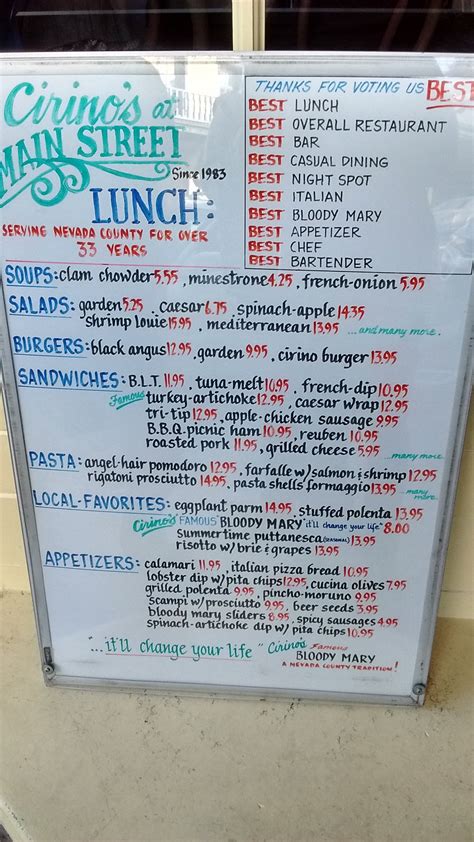 Cirino's at
MAIN STREET
Since 1983
LUNCH:
SERVING NEVADA COUNTY FOR OVER
33 YEARS
THANKS FOR VOTING US BEST
BEST LUNCH
BEST OVERALL RESTAURANT
BEST BAR
BEST CASUAL DINING
BEST NIGHT SPOT
BEST ITALIAN
BEST BLOODY MARY
BEST APPETIZER
BEST CHEF
BEST BARTENDER
SOUPS: clam chowder 5.55, minestrone 4.25, french-onion 5.95
SALADS: garden 5.25, caesar 6.75, spinach-apple 14.35
shrimp louie 15.95, mediterranean 13.95 ...and many more.
BURGERS: black angus 12.95, garden 9.95, cirino burger 13.95
SANDWICHES: B.L.T. 11.95, tuna-melt 10.95, french-dip 10.95
Famous turkey-artichoke 12.95, caesar wrap 12.95
tri-tip 12.95, apple-chicken sausage 9.95
B.B.Q. picnic ham 10.95, reuben 10.95
roasted pork 11.95, grilled cheese 5.95 ...many more
PASTA: angel-hair pomodoro 12.95, farfalle w/salmon & shrimp 12.95
rigatoni prosciutto 14.95, pasta shells formaggio 13.95 many more
LOCAL-FAVORITES: eggplant parm 14.95, stuffed polenta 13.95
Cirino's "FAMOUS" BLOODY MARY "it'll change your life" 8.00
Summertime puttanesca (SEASONAL) 13.95
risotto w/brie & grapes 13.95
APPETIZERS: calamari 11.95, italian pizza bread 10.95
lobster dip w/pita chips 12.95, cucina olives 7.95
grilled polenta 9.95, pincho-moruno 9.95
scampi w/prosciutto 9.95, beer seeds 3.95
bloody mary sliders 8.95, spicy sausages 4.95
spinach-artichoke dip w/pita chips 10.95
"...it'll change your life" Cirino's Famous
BLOODY MARY
A NEVADA COUNTY TRADITION!